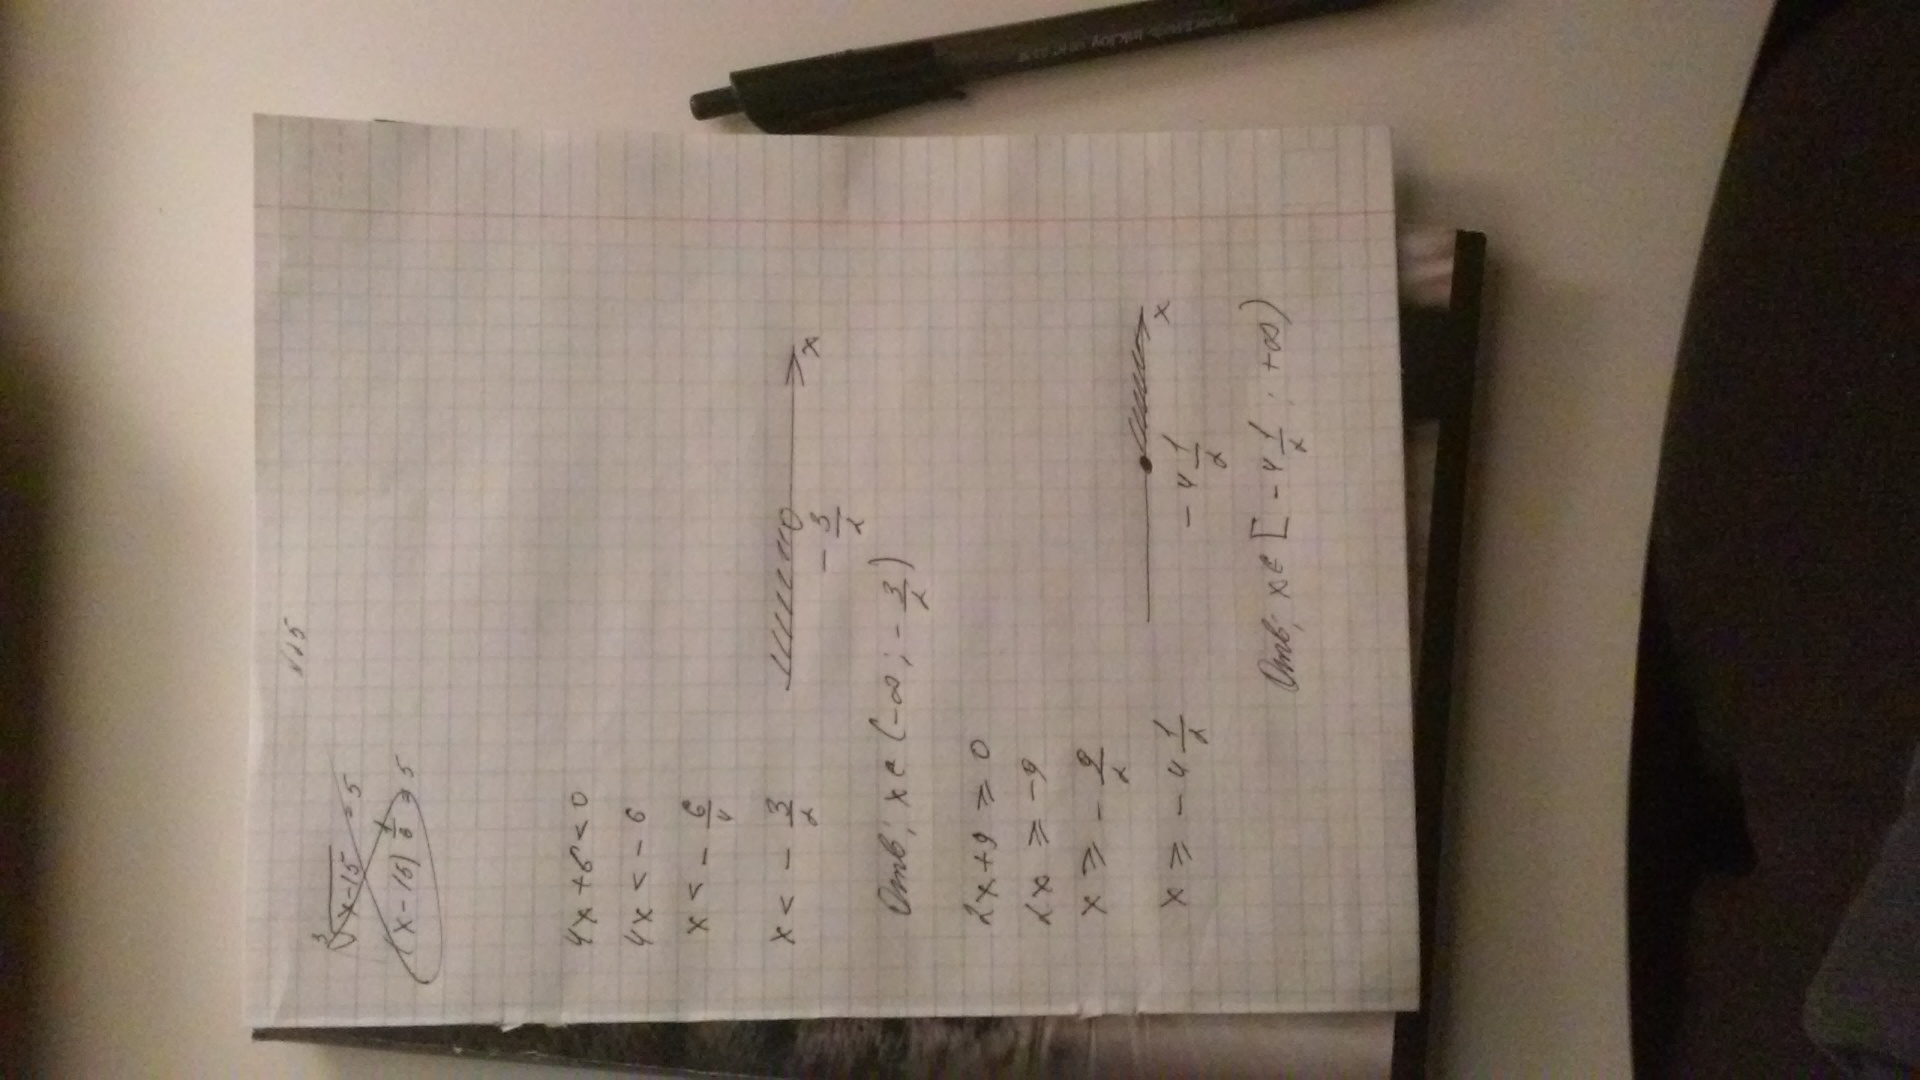 √15
³√x-15 = 5
(x-15)^(1/3) = 5
4x+6<0
4x < -6
x < - 6/4
x < - 3/2
- 3/2 x
Отв; x ∈ (-∞; - 3/2)
2x+9 ≥ 0
2x ≥ -9
x ≥ - 9/2
x ≥ - 4 1/2
- 4 1/2 x
Отв; x ∈ [- 4 1/2; +∞)